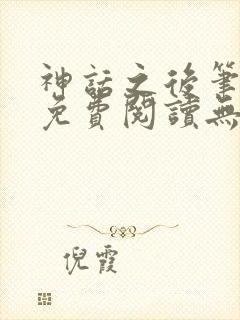 神話之後筆
免費閱讀無
倪霞